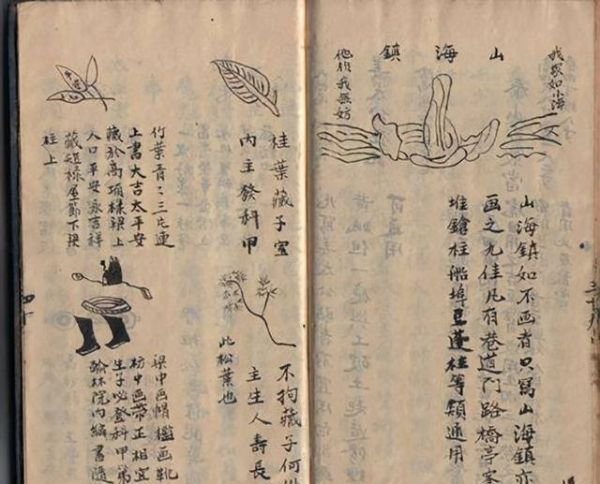 我家如山海
山海鎮
他作我無妨
山海鎮如不画者只寫山海鎮亦
画之尤佳凡有巷道門路橋亭
堆鎗柱船埠豆蓬柱等類通用
桂葉藏于
内主發科甲
不拘藏于何
主生人壽長
此松葉也
竹葉青〻三片連
上書大吉太平安
藏於高項樑上
人口平安永吉祥
藏短樑屋節下梁
柱上
梁中画帽檻画靴
枋中画帶正相宜
生子必登科甲第
翰林院内編書
四十